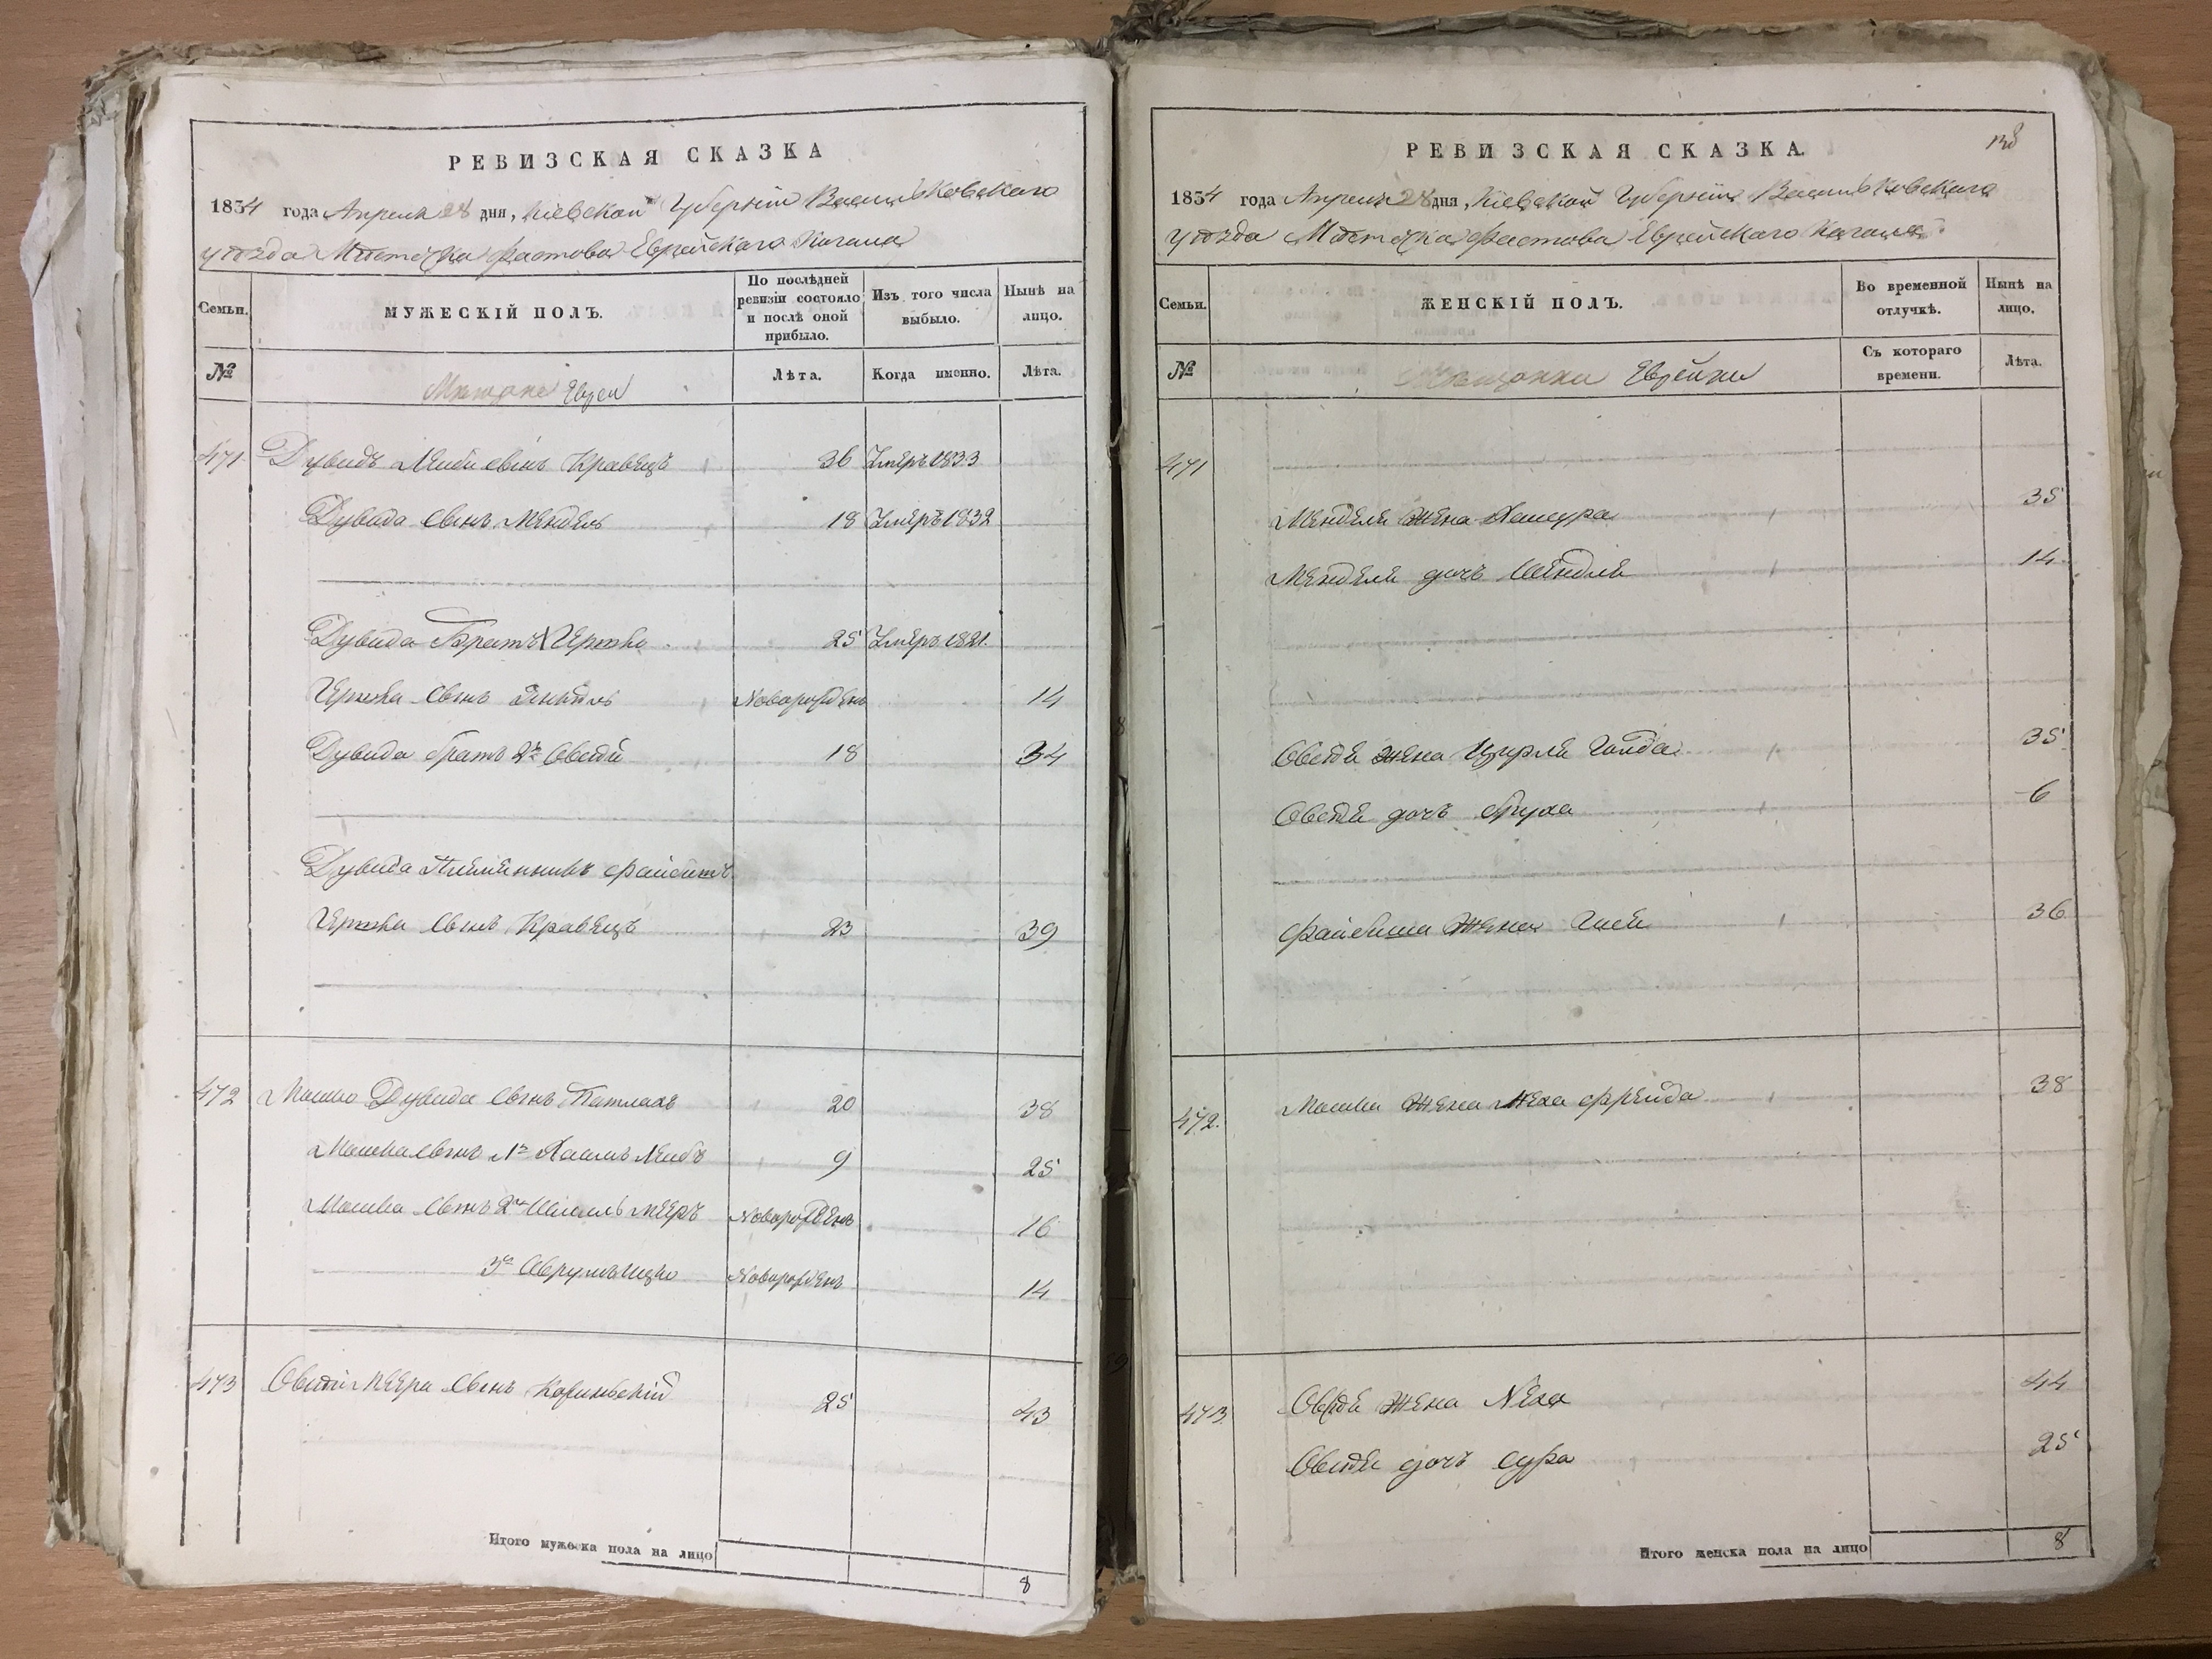 РЕВИЗСКАЯ СКАЗКА
1834 года Апреля 28 дня, Кіевской Губерніи Васильковскаго
уѣзда Мѣстечка Фастова Еврейскаго Кагала
Семьи.
МУЖЕСКІЙ ПОЛЪ.
По послѣдней ревизіи состояло и послѣ оной прибыло.
Изъ того числа выбыло.
Нынѣ на лицо.
№
Мѣщане Евреи
Лѣта.
Когда именно.
Лѣта.
471 Дувидъ Лейби сынъ Кравецъ 36 Умеръ 1833
Дувида сынъ Мендель 18 Умеръ 1832
Дувида братъ Гершко 25 Умеръ 1821.
Гершка сынъ Новорожденъ 14
Дувида братъ 2й Овсей 18 34
Дувида Племянникъ Файбишъ
Гершки сынъ Кравецъ 23 39
472 Мошко Дувида сынъ Патлахъ 20 38
Мошка сынъ 1й Хаимъ Лейбъ 9 25
Мошка сынъ 2й Шмуль Мееръ Новорожденъ 16
3й Аврумъ Ицко Новорожденъ 14
473 Овсій Меера сынъ 25 43
Итого мужеска пола на лицо
8
138
РЕВИЗСКАЯ СКАЗКА.
1834 года Апреля 28 дня, Кіевской Губерніи Васильковскаго
уѣзда Мѣстечка Фастова Еврейскаго Кагала
Семьи.
ЖЕНСКІЙ ПОЛЪ.
Во временной отлучкѣ.
Нынѣ на лицо.
№
Мѣщанки Еврейки
Съ котораго времени.
Лѣта.
471
Менделя жена Хаисура 35
Менделя дочь Шейндля 14
Овсея жена Цирля Голда 35
Овсея дочь Бруха 6
Файбиша жена 36
472. Мошка жена Неха Фрейда 38
473 Овсея жена Неха 44
Овсея дочь Сура 25
Итого женска пола на лицо 8